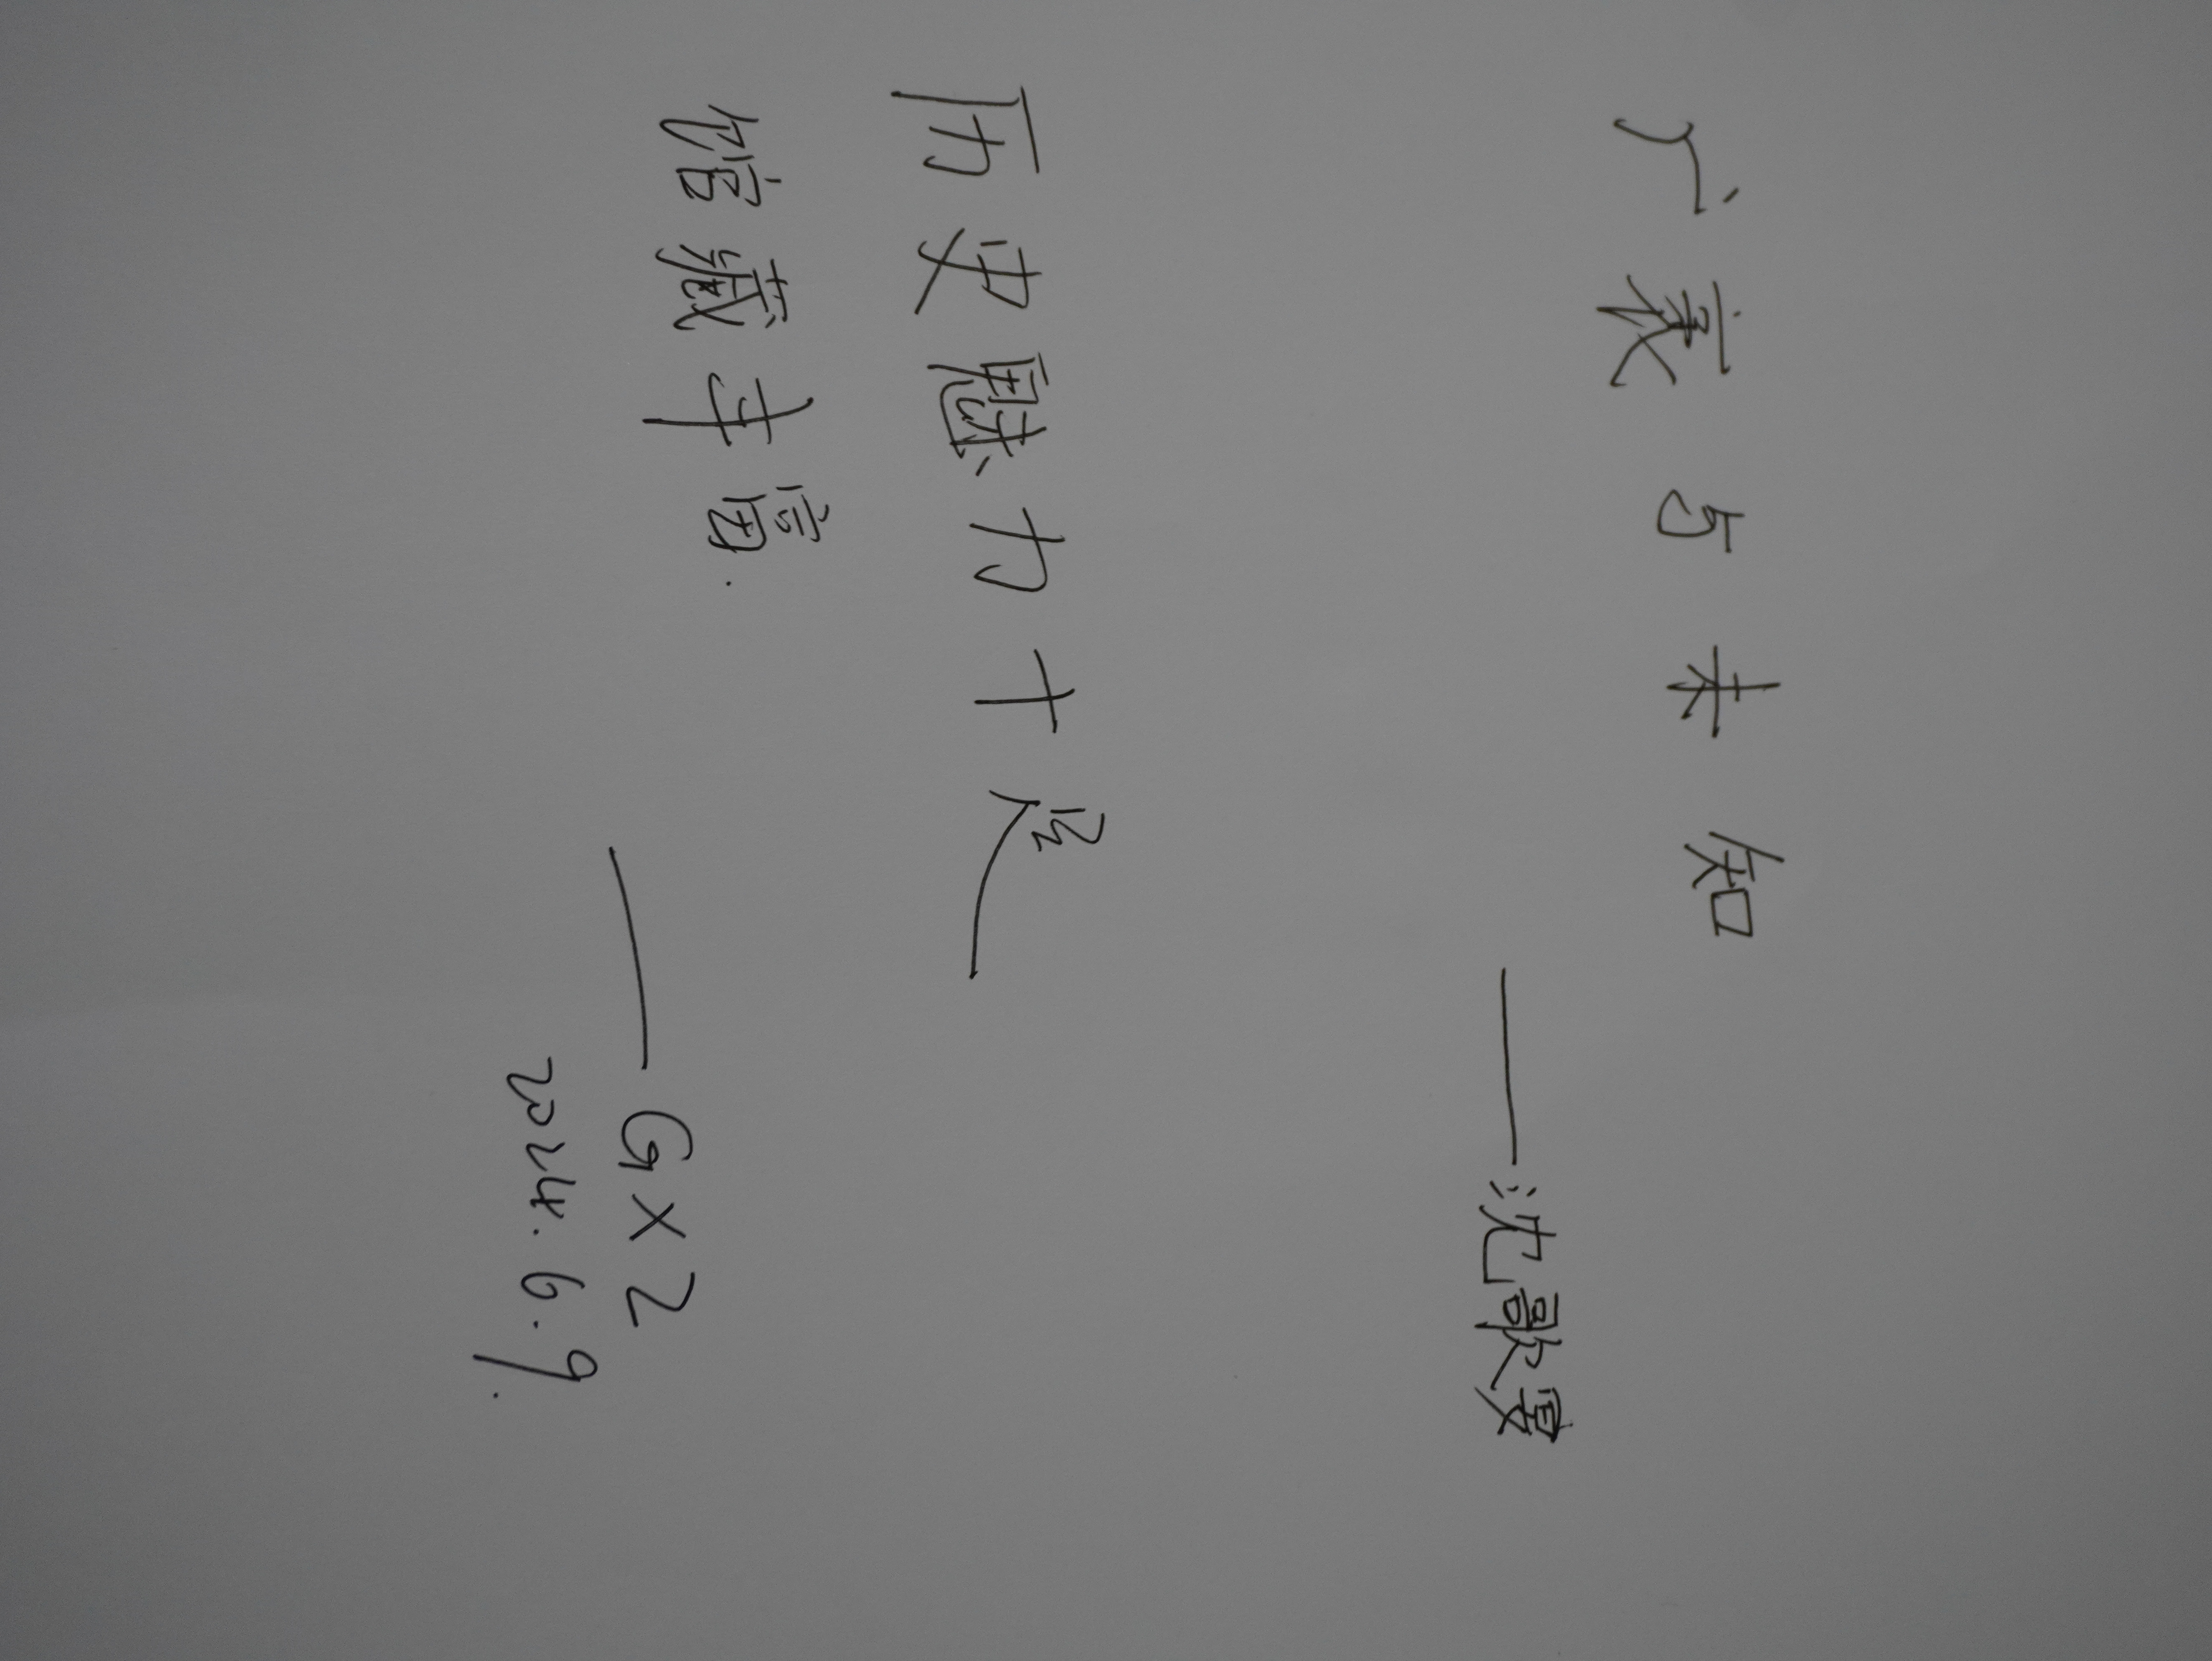 广袤与未知
——沈歌
历史魅力十足
馆藏丰富.
——GXZ
2024.6.9.